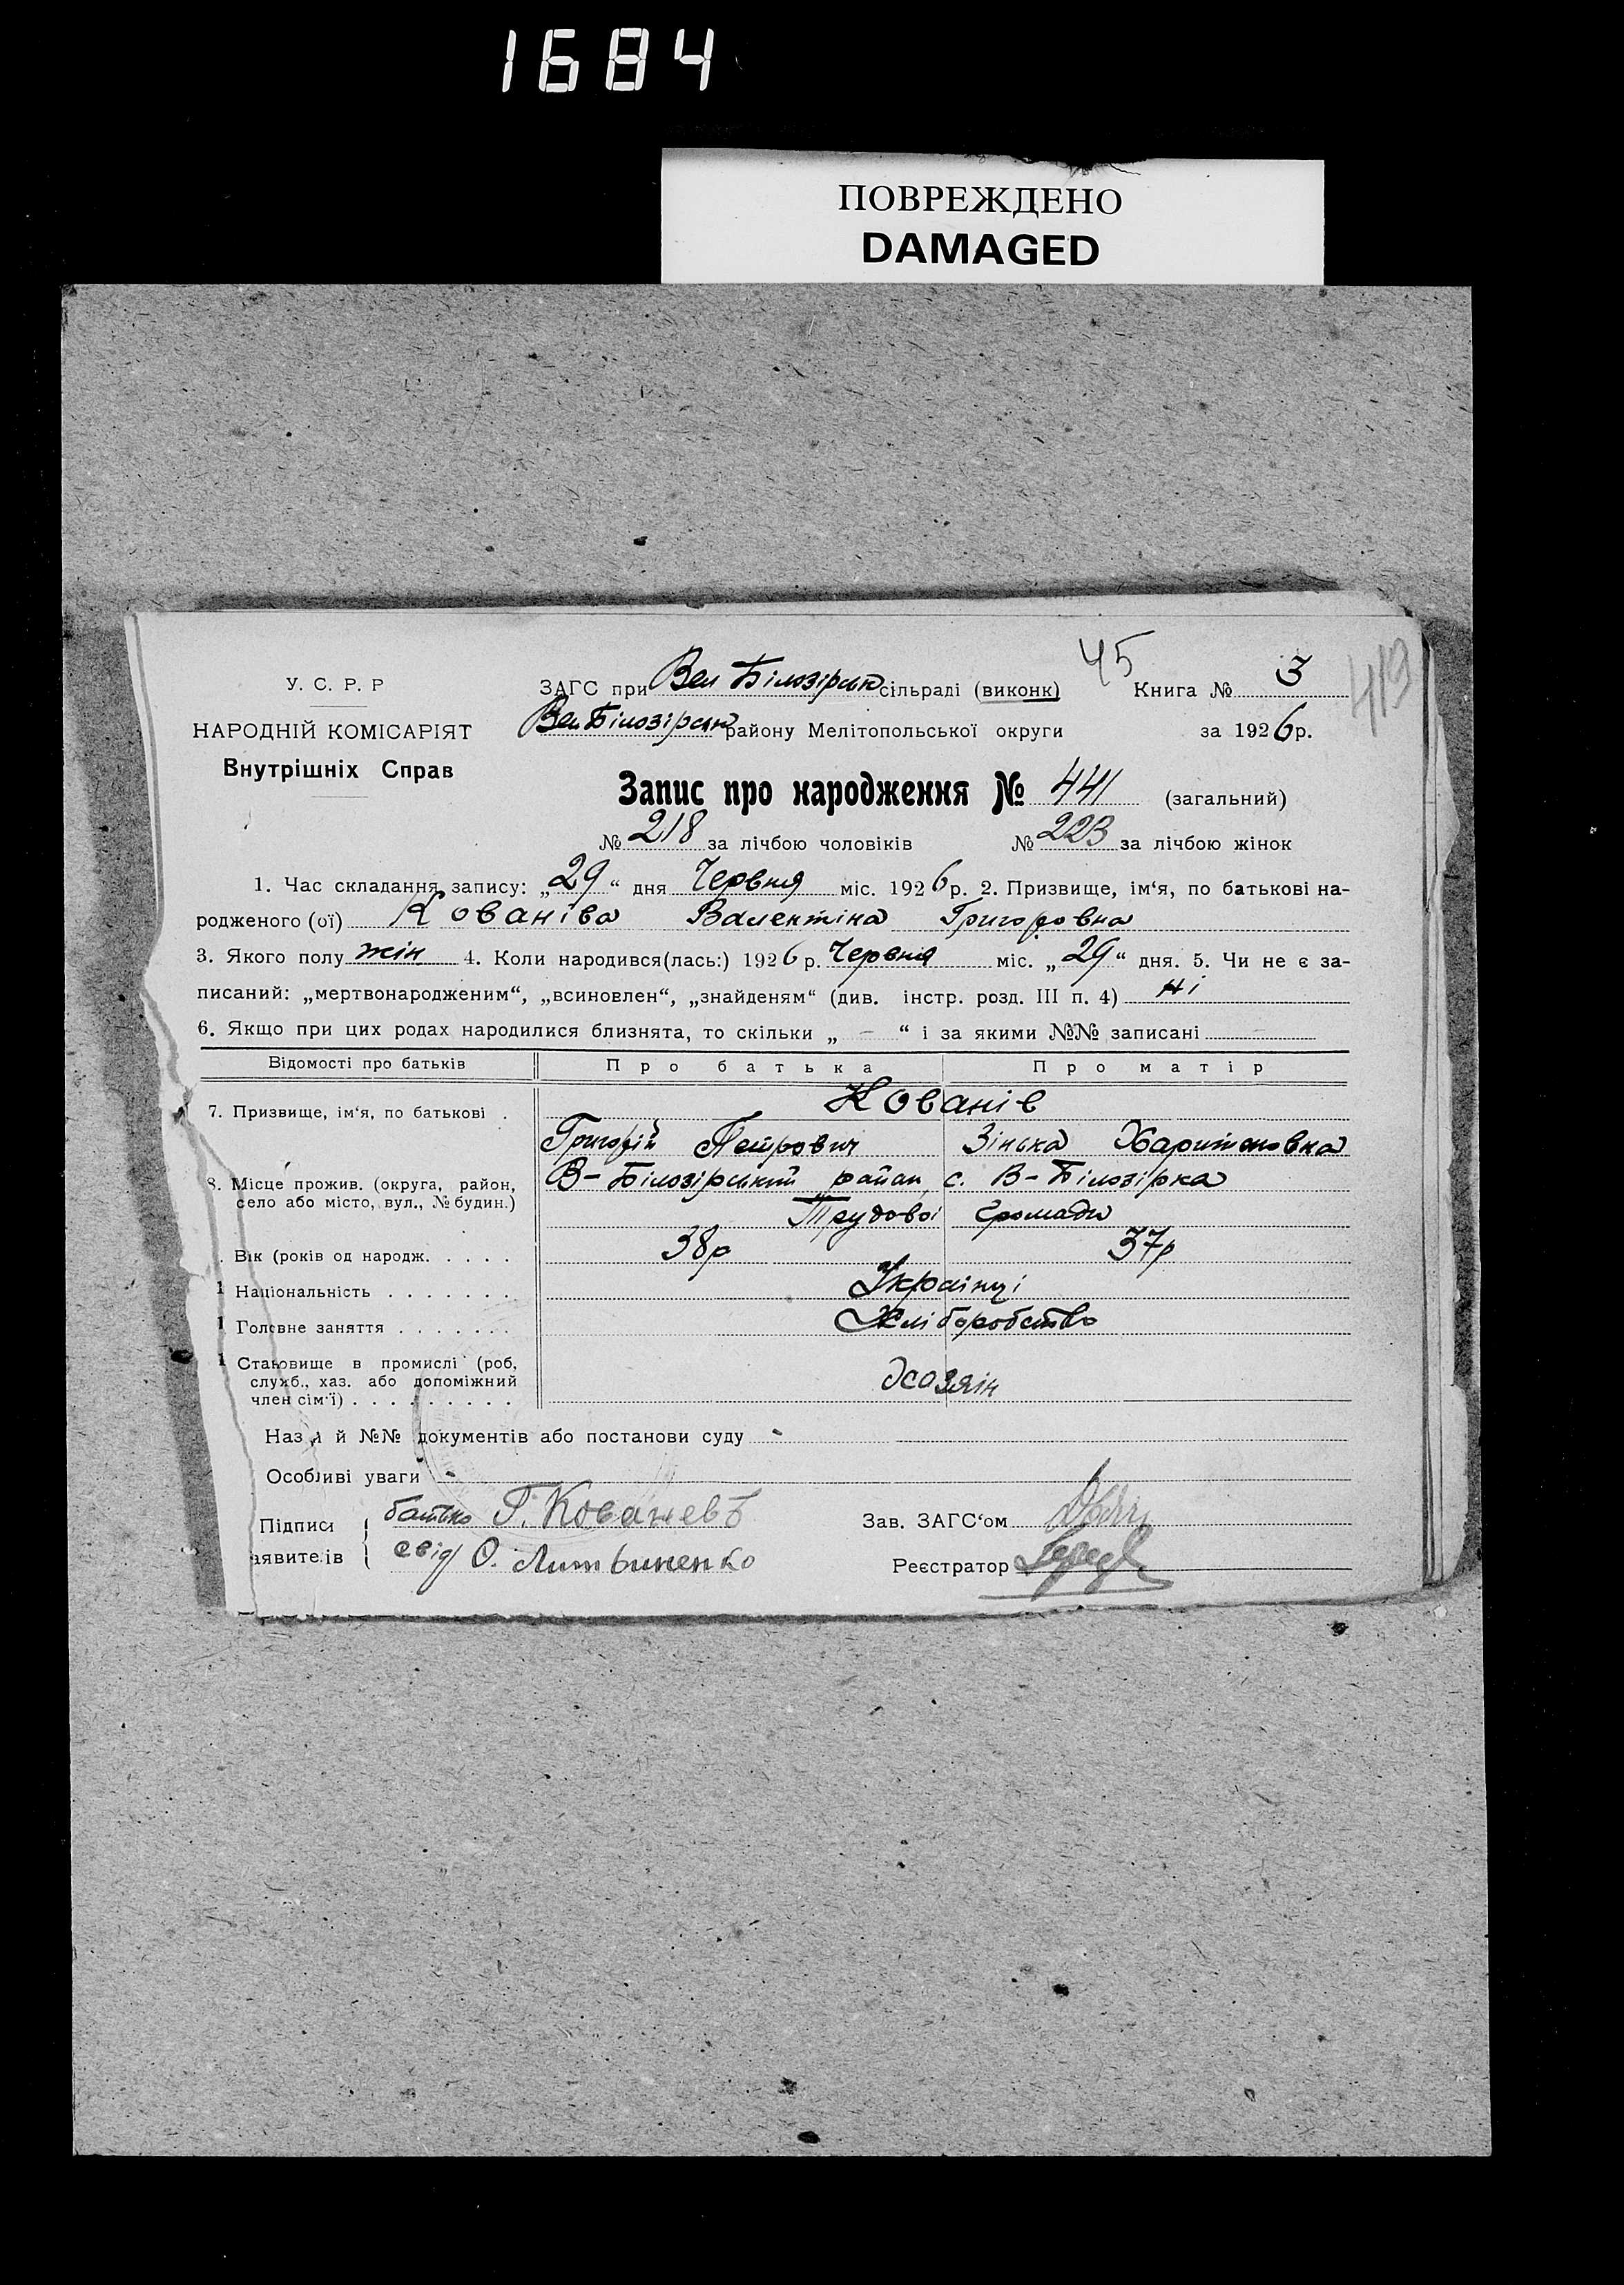 1684
ПОВРЕЖДЕНО
DAMAGED
45
413
У. С. Р. Р
НАРОДНІЙ КОМІСАРІЯТ
Внутрішніх Справ
ЗАГС при Вел Білозірськ сільраді (виконк) Книга № 3
Вел Білозірськ району Мелітопольської округи за 1926 р.
Запис про народження № 441 (загальний)
№ 218 за лічбою чоловіків № 223 за лічбою жінок
1. Час складання запису: „29“ дня Червня міс. 1926 р. 2. Призвище, ім‘я, по батькові на-
родженого (ої) Кованіва Валентіна Григоровна
3. Якого полу жін 4. Коли народився(лась:) 1926 р. Червня міс. „29“ дня. 5. Чи не є за-
писаний: „мертвонародженим“, „всиновлен“, „знайденям“ (див. інстр. розд. III п. 4) Ні
6. Якщо при цих родах народилися близнята, то скільки „ – “ і за якими №№ записані
Відомості про батьків Про батька Про матір
7. Призвище, ім‘я, по батькові . Кованів
Григорій Петрович Зінька Харитоновна
8. Місце прожив. (округа, район, В-Білозірський район, с. В-Білозірка
село або місто, вул., № будин.) Трудової громади
. Вік (років од народж. . . . . 38р 37р
1 Національність . . . . . . . Українці
1 Головне заняття . . . . . . . Хліборобство
1 Становище в промислі (роб,
служб., хаз. або допоміжний Хозяін
член сім‘ї) . . . . . . . . .
Наз а й №№ документів або постанови суду -
Особливі уваги -
Підписи батько Г. Кованевъ Зав. ЗАГС‘ом
аявителів свід О. Литвиненко Реєстратор